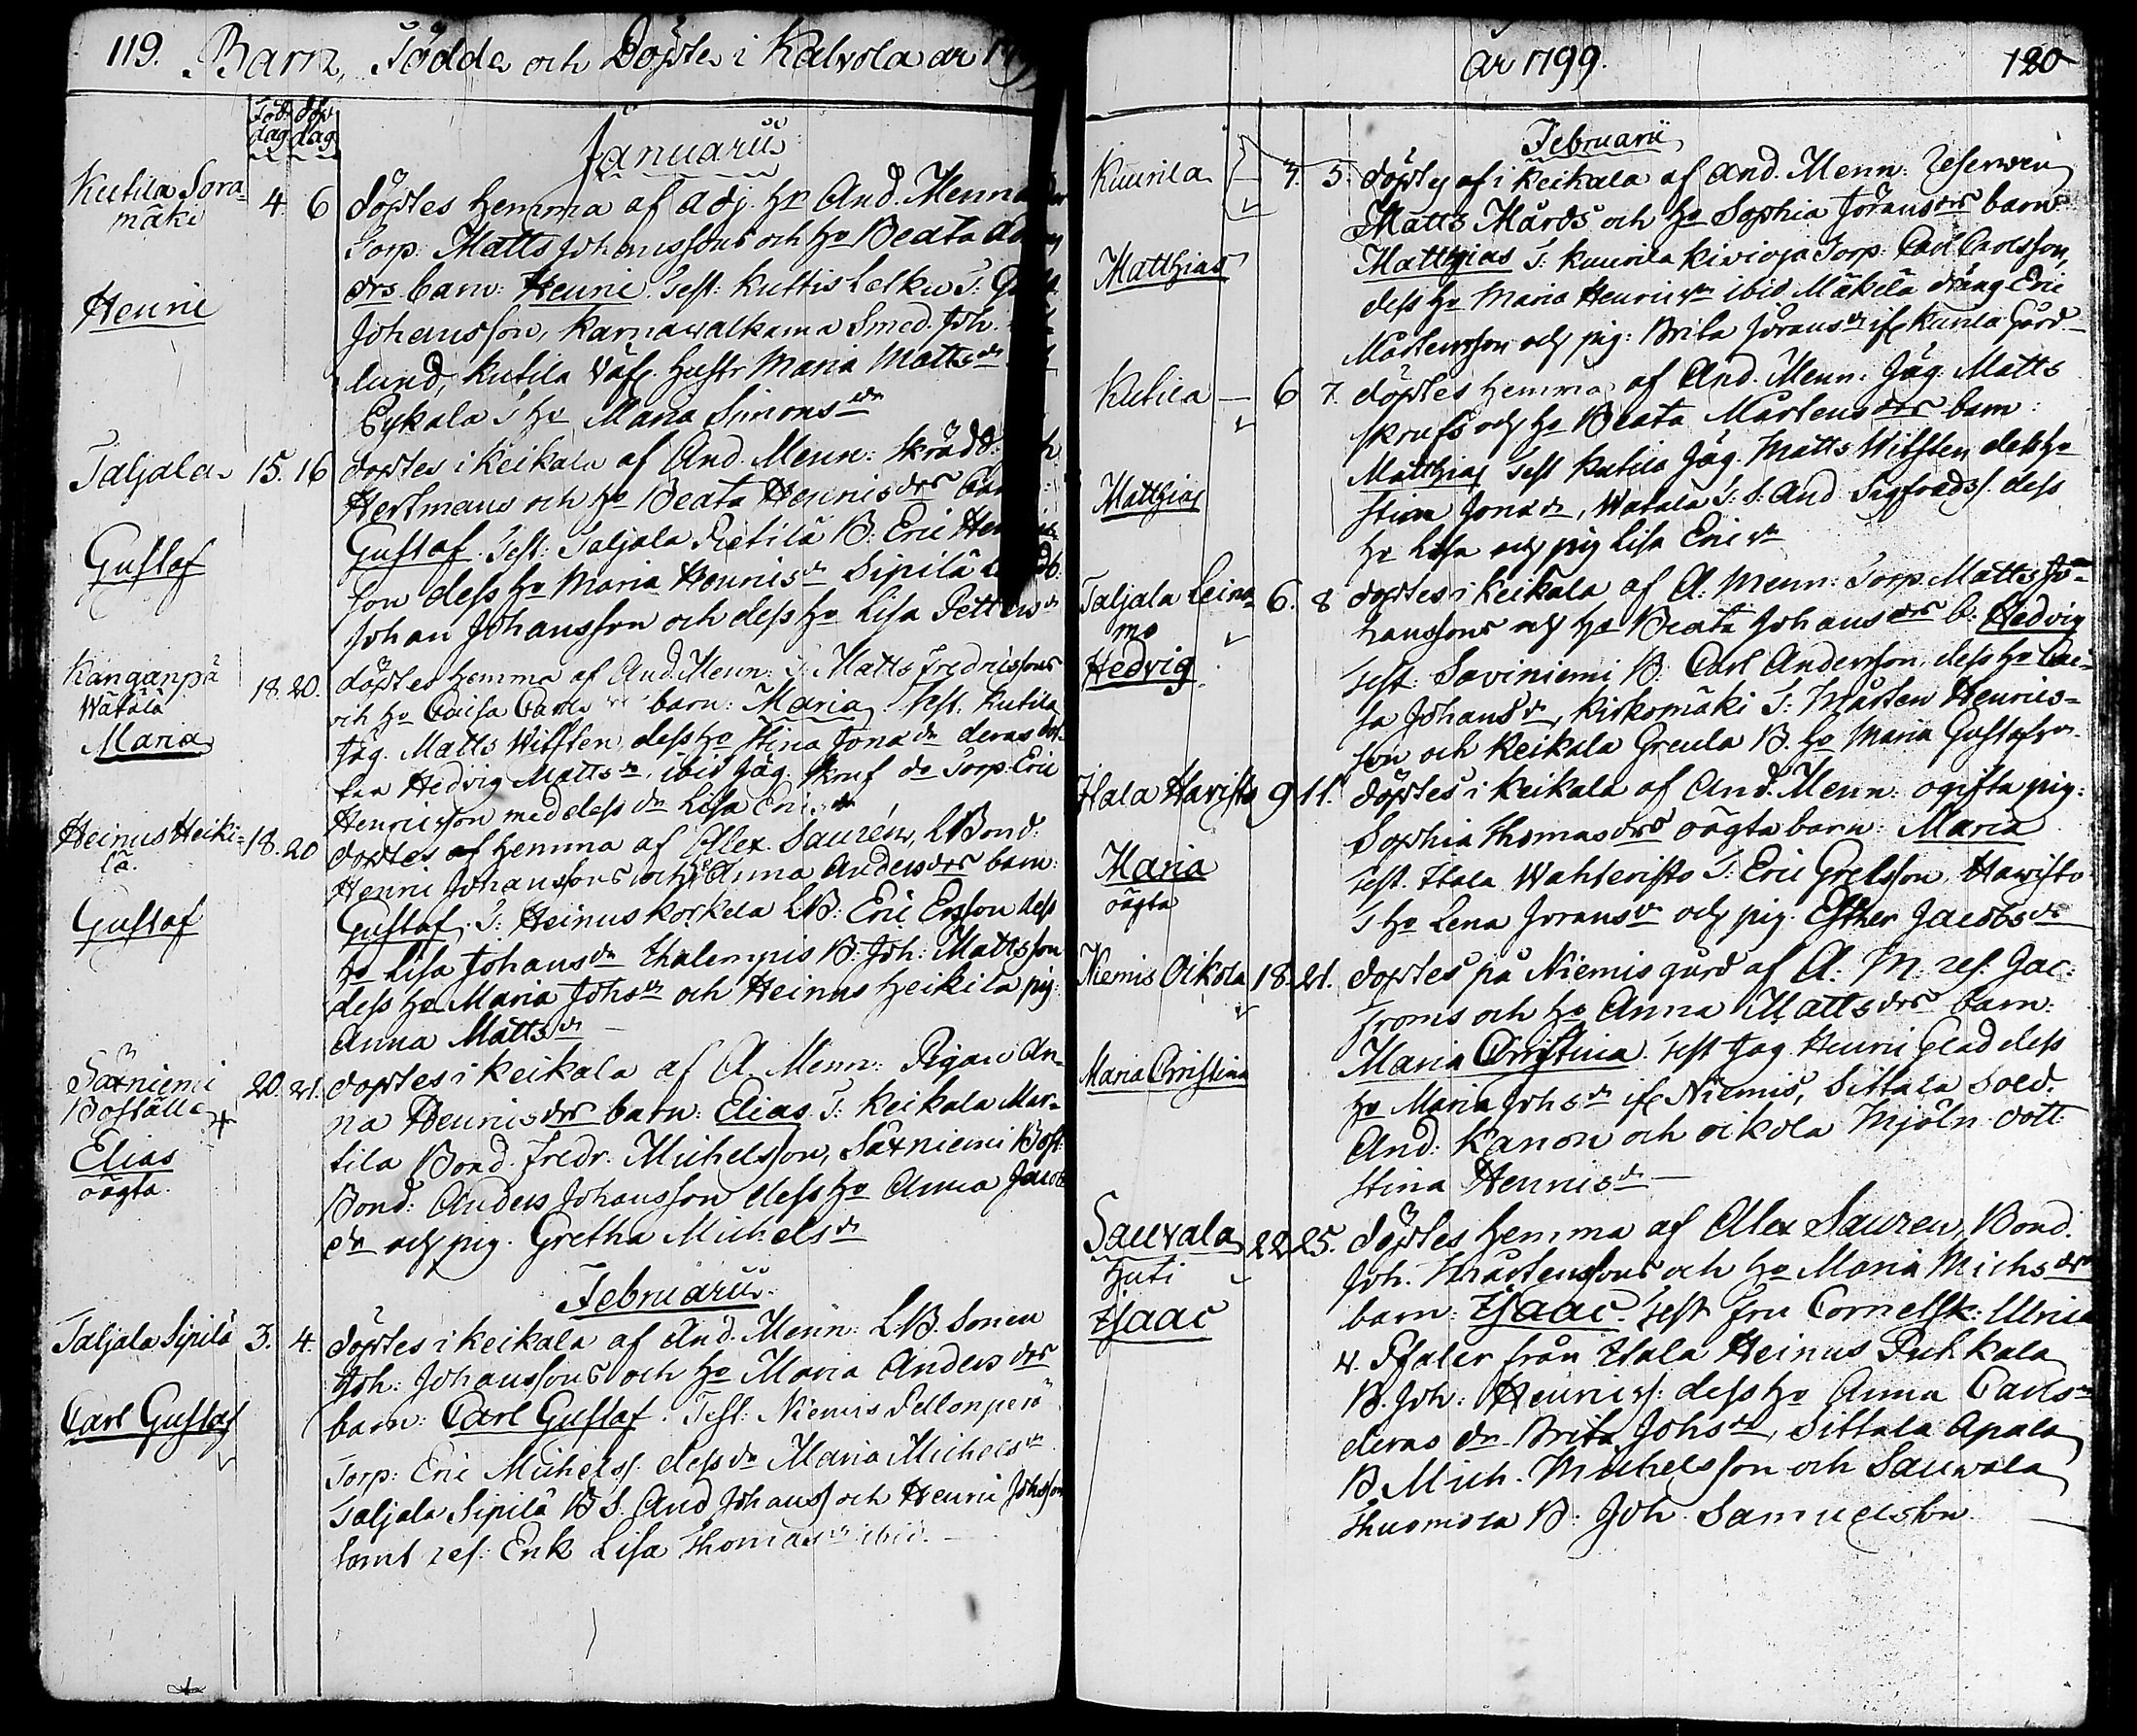 119. Barn, Födde och Döpte i Kalvola år 179
Föd. döp
dag dag
Januarii
Kutila Sora=
mäki
4. 6 döptes hemma af adj. hr And. Menna
Torp. Matts Johanssons och ho Beata
drs. barn: Henric. Test: Kuttis Lelku T:
Henric
Johansson, Karnawalkama Smed. Joh.
lund, Kutila Väf. hustr Maria Mattsdr
Eykala T ho Maria Simonsdr
Taljala 15. 16 döptes i Keikala af And. Menn: Skrädd:
Hertmans och ho Beata Henricsdrs
Gustaf. Test: Taljala Pietilä B: Eric
Gustaf
son dess ho Maria Henricsdr Sipilä
Johan Johansson och dess ho Lisa Pettersdr
Kanganpä
Wätälä
Maria
18. 20. döptes hemma af And. Menn: T: Matts Fredricssons
och ho Caisa Carls barn: Maria. Test. Kutila
Jäg. Matts Wilsten, dess ho Stina Jonædr deras dot-
ter Hedvig Mattsdr, ibid Jäg. Skruf do Torp. Eric
Henricsson med dess dr Lisa Ericsdr
Heinus Heiki=
lä.
18. 20 döptes af hemma af Alex. Saurén, LBond.
Henric Johanssons och ho Anna Andersdrs barn:
Gustaf
Gustaf. T: Heinus Korkela LB: Eric Ersson dess
ho Lisa Johansdr Ihalempis B: Joh: Mattsson
dess ho Maria Johsdr och Heinus Heikila pig:
Anna Mattsdr
Säxniemi
Boställe
Elias
oägta.
20. 21. döptes i Keikala af A. Menn: Pigan An-
na Henricsdrs barn: Elias. T: Keikala Mar-
tila Bond. Fredr. Michelsson, Säxniemi Bost
Bond: Anders Johansson dess ho Anna Jacobs
dr och pig. Gretha Michelsdr
Februarii.
Taljala Sipilä 3. 4. döptes i Keikala af And. Menn: LB. Sonen
Joh: Johanssons och ho Maria Andersdrs
Carl Gustaf
barn: Carl Gustaf. Test: Niemis Pellonperö
Torp: Eric Michelss. dess dr Maria Michelsdr
Taljala Sipilä B S. And Johanss och Henric Johsson
samt ref: Enk Lisa Thomasdr ibid.
år 1799. 120
Februarii
Kuurila 3. 5. döptes af i Keikala af And. Menn: Reserven
Matts Hårds och ho Sophia Jöransdrs barn
Matthias
Matthias T: Kuurila Kivioja Torp. Carl Carlsson,
dess ho Maria Henricsdr ibid Mäkelä dräng Eric
Mårtensson och pig: Brita Jöransdr if. Kurila Gård
Kutila 6 7. döptes hemma af And. Menn. Jäg. Matts
Skrufs och ho Beata Mårtensdrs barn:
Matthias
Matthias Test Kutila Jäg. Matts Wilsten dess ho
Stina Jonædr, Watala T: S. And Sigfredss. dess
ho Lisa och pig Lisa Ericsdr
Taljala Leine-
mo
Hedvig
6. 8 döptes i Keikala af A. Menn: Torp. Matts Jo-
hanssons och ho Beata Johansdrs b. Hedvig
Test: Saviniemi B: Carl Andersson, dess ho Cai-
sa Johansdr, Kirksmäki T: Mårten Henrics-
son och Keikala Greula B. ho Maria Gustafsdr
Itala Haristo 9 11. döptes i Keikala af And. Menn: ogifta pig:
Sophia Thomasdrs oägta barn: Maria
Maria
oägta
Test. Itala Wahteristo T: Eric Grelsson, Haristo
T ho Lena Jöransdr och pig. Esther Jacobsdr
Niemis Oikola 18. 21. döptes på Niemis gård af A: M: ref. Jac:
Froms och ho Anna Mattsdrs barn:
Maria Christina
Maria Christina. Test Jag Henric Glad dess
ho Maria Johsdr if Niemis, Sittala Sold.
And: Kanon och Oikola Mjöln dott:
Stina Henricsdr
Sauvala
Huti
Isaac
22. 25. döptes hemma af Alex Sauren, Bond.
Joh. Mårtenssons och ho Maria Michsdrs
barn: Isaac. Test Fru Cornetsk: Ulrica
v. Pfaler från Itala Heinus Puhkala
B. Joh: Henrics. dess ho Anna Carlsdr
deras dr Brita Johsdr, Sittala Apala
B Mich. Michelsson och Sauvala
Thuomola B: Joh. Samuelsson